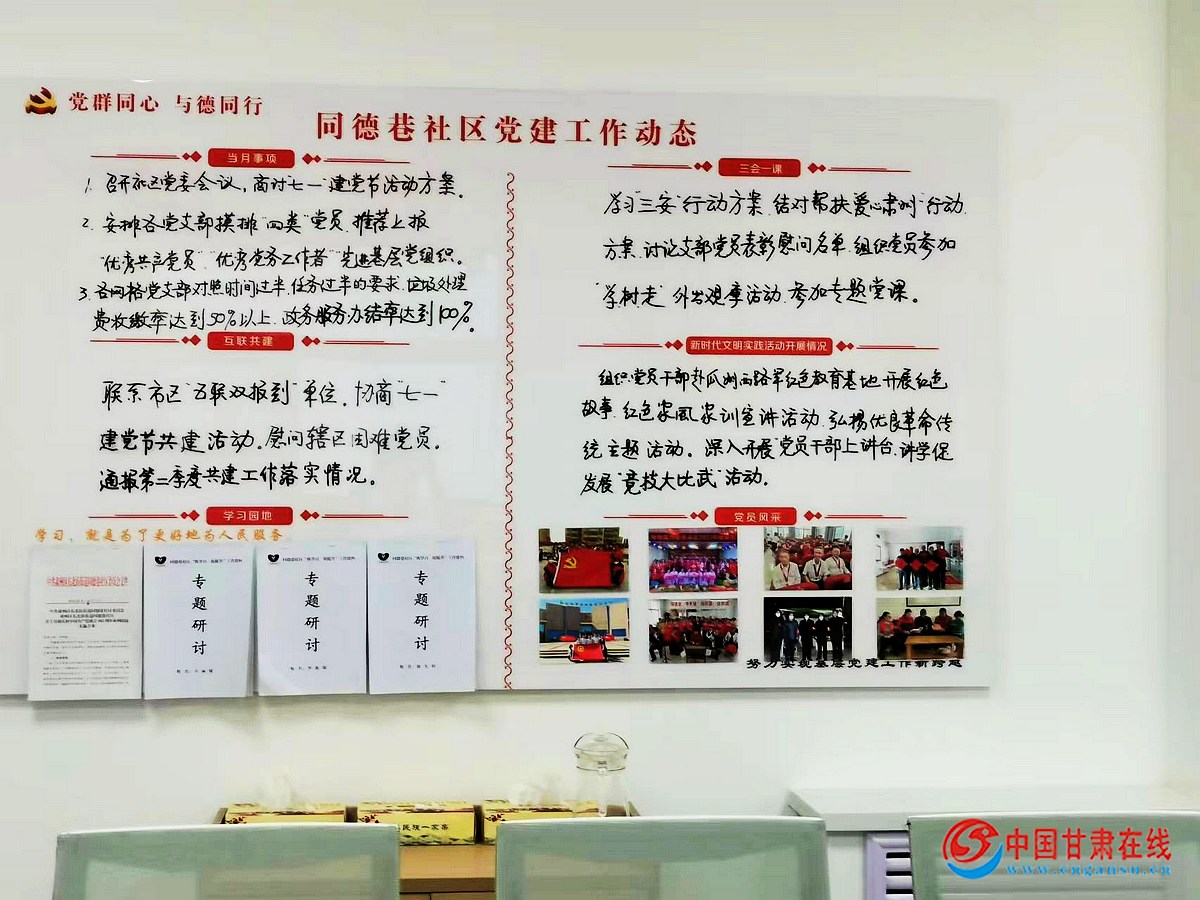 党群同心 与德同行
同德巷社区党建工作动态
当月事项
1. 召开社区党委会议，商讨"七一"建党节活动方案。
2. 安排各党支部摸排"四类"党员，推荐上报
"优秀共产党员""优秀党务工作者"先进基层党组织。
3. 各网格党支部对照时间过半、任务过半的要求，垃圾处理
费收缴率达到50%以上，政务服务办结率达到100%。
互联共建
联系市区"五联双报到"单位，协商"七一"
建党节共建活动。慰问辖区困难党员。
通报第二季度共建工作落实情况。
学习园地
学习，就是为了更好地为人民服务
专题研讨
专题研讨
专题研讨
三会一课
学习"三安"行动方案、结对帮扶爱心肃州"行动
方案、讨论支部党员表彰慰问名单、组织党员参加
"学树走"外出观摩活动、参加专题党课。
新时代文明实践活动开展情况
组织党员干部赴瓜州西路军红色教育基地开展红色
故事、红色家风家训宣讲活动、弘扬优良革命传
统主题活动。深入开展"党员干部上讲台、讲学促
发展"竞技大比武"活动。
党员风采
努力实现基层党建工作新跨越
民族一家亲
中国甘肃在线
www.cngansu.cn